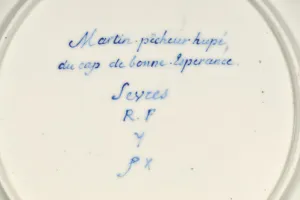 Martin-pêcheur hupé,
du cap de bonne Esperance.
Sevres
R. F